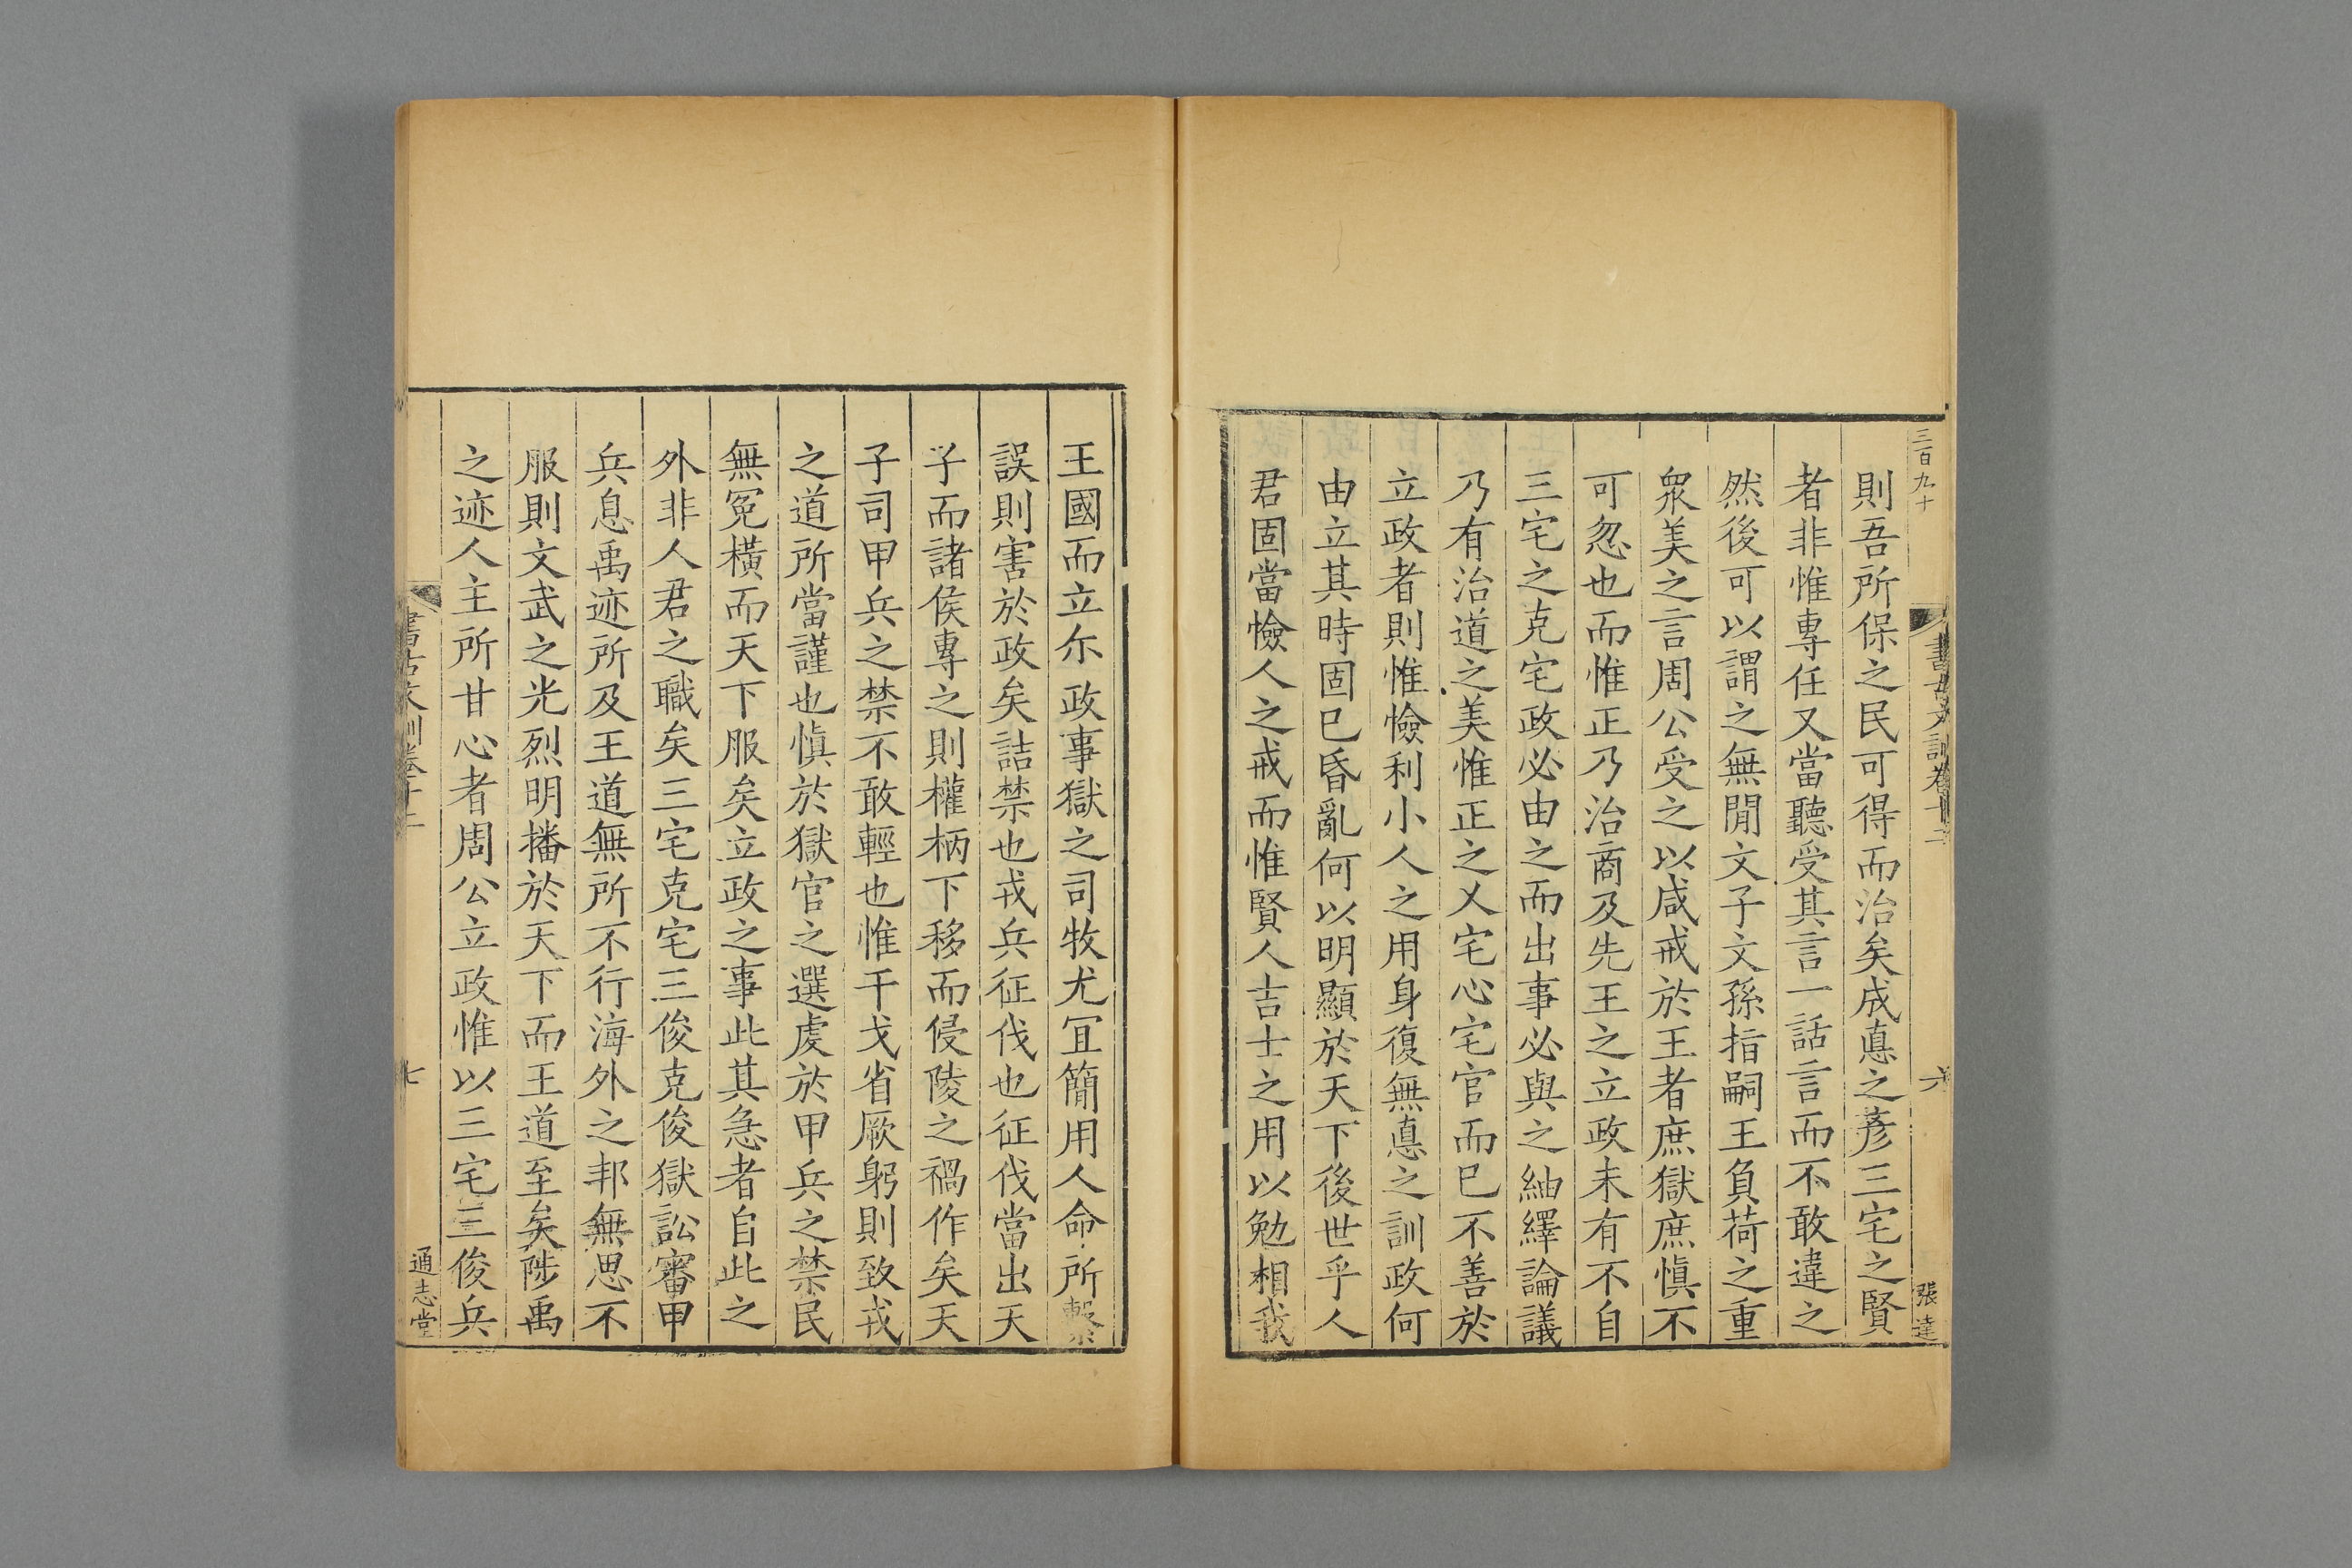 三百九十
書古文訓卷十二
六
張達
則吾所保之民可得而治矣成悳之彥三宅之賢
者非惟專任又當聽受其言一話言而不敢違之
然後可以謂之無閒文子文孫指嗣王負荷之重
衆美之言周公受之以咸戒於王者庶獄庶愼不
可忽也而惟正乃治商及先王之立政未有不自
三宅之克宅政必由之而出事必與之紬繹論議
乃有治道之美惟正之乂宅心宅官而已不善於
立政者則惟憸利小人之用身復無悳之訓政何
由立其時固已昏亂何以明顯於天下後世乎人
君固當憸人之戒而惟賢人吉士之用以勉相我
王國而立尓政事獄之司牧尤宜簡用人命所繫
誤則害於政矣詰禁也戎兵征伐也征伐當出天
子而諸侯專之則權柄下移而侵陵之禍作矣天
子司甲兵之禁不敢輕也惟干戈省厥躬則致戎
之道所當謹也愼於獄官之選虔於甲兵之禁民
無冤橫而天下服矣立政之事此其急者自此之
外非人君之職矣三宅克宅三俊克俊獄訟審甲
兵息禹迹所及王道無所不行海外之邦無思不
服則文武之光烈明播於天下而王道至矣陟禹
之迹人主所甘心者周公立政惟以三宅三俊兵
書古文訓卷十二
七
通志堂